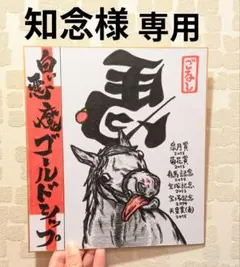 知念様 専用
ごるし
皐月賞
菊花賞
有馬記念
宝塚記念
宝塚記念
天皇賞(春)
白い悪魔
ゴールドシップ